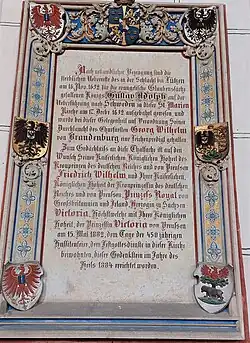 Nach urkundlicher Bezeugung sind die
sterblichen Ueberreste des in der Schlacht bei Lützen
am 16. Nov. 1632 für die evangelische Glaubenssache
gefallenen Königs Gustav Adolph auf der
Ueberführung nach Schweden in dieser St. Marien
Kirche am 17. Decbr 1632 aufgebahrt gewesen, und
wurde bei dieser Gelegenheit auf Verordnung Seiner
Durchlaucht des Churfürsten Georg Wilhelm
von Brandenburg eine Leichenpredigt gehalten.
Zum Gedächtniß an diese Thatsache ist auf den
Wunsch Seiner Kaiserlichen Königlichen Hoheit des
Kronprinzen des deutschen Reiches und von Preussen
Friedrich Wilhelm, und Ihrer Kaiserlichen,
Königlichen Hoheit der Kronprinzessin des deutschen
Reiches und von Preussen, Prinzess Royal von
Großbritannien und Irland, Herzogin zu Sachsen
Victoria, Höchstwelche mit Ihrer Königlichen
Hoheit, der Prinzessin Victoria von Preussen
am 15. Mai 1882, dem Tage der 450 jährigen
Hussitenfeier, dem Festgottesdienste in dieser Kirche
beiwohnten, dieser Gedenkstein im Jahre des
Heils 1884 errichtet worden.